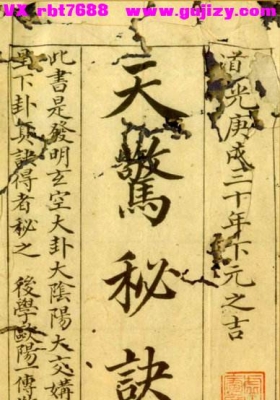 VX rbt7688 www.gujizy.com
道光庚戌三十年下元之吉
天驚秘訣
此書是發明玄空大卦大陰陽大交媾
下卦真訣得者秘之 後學歐陽一傳